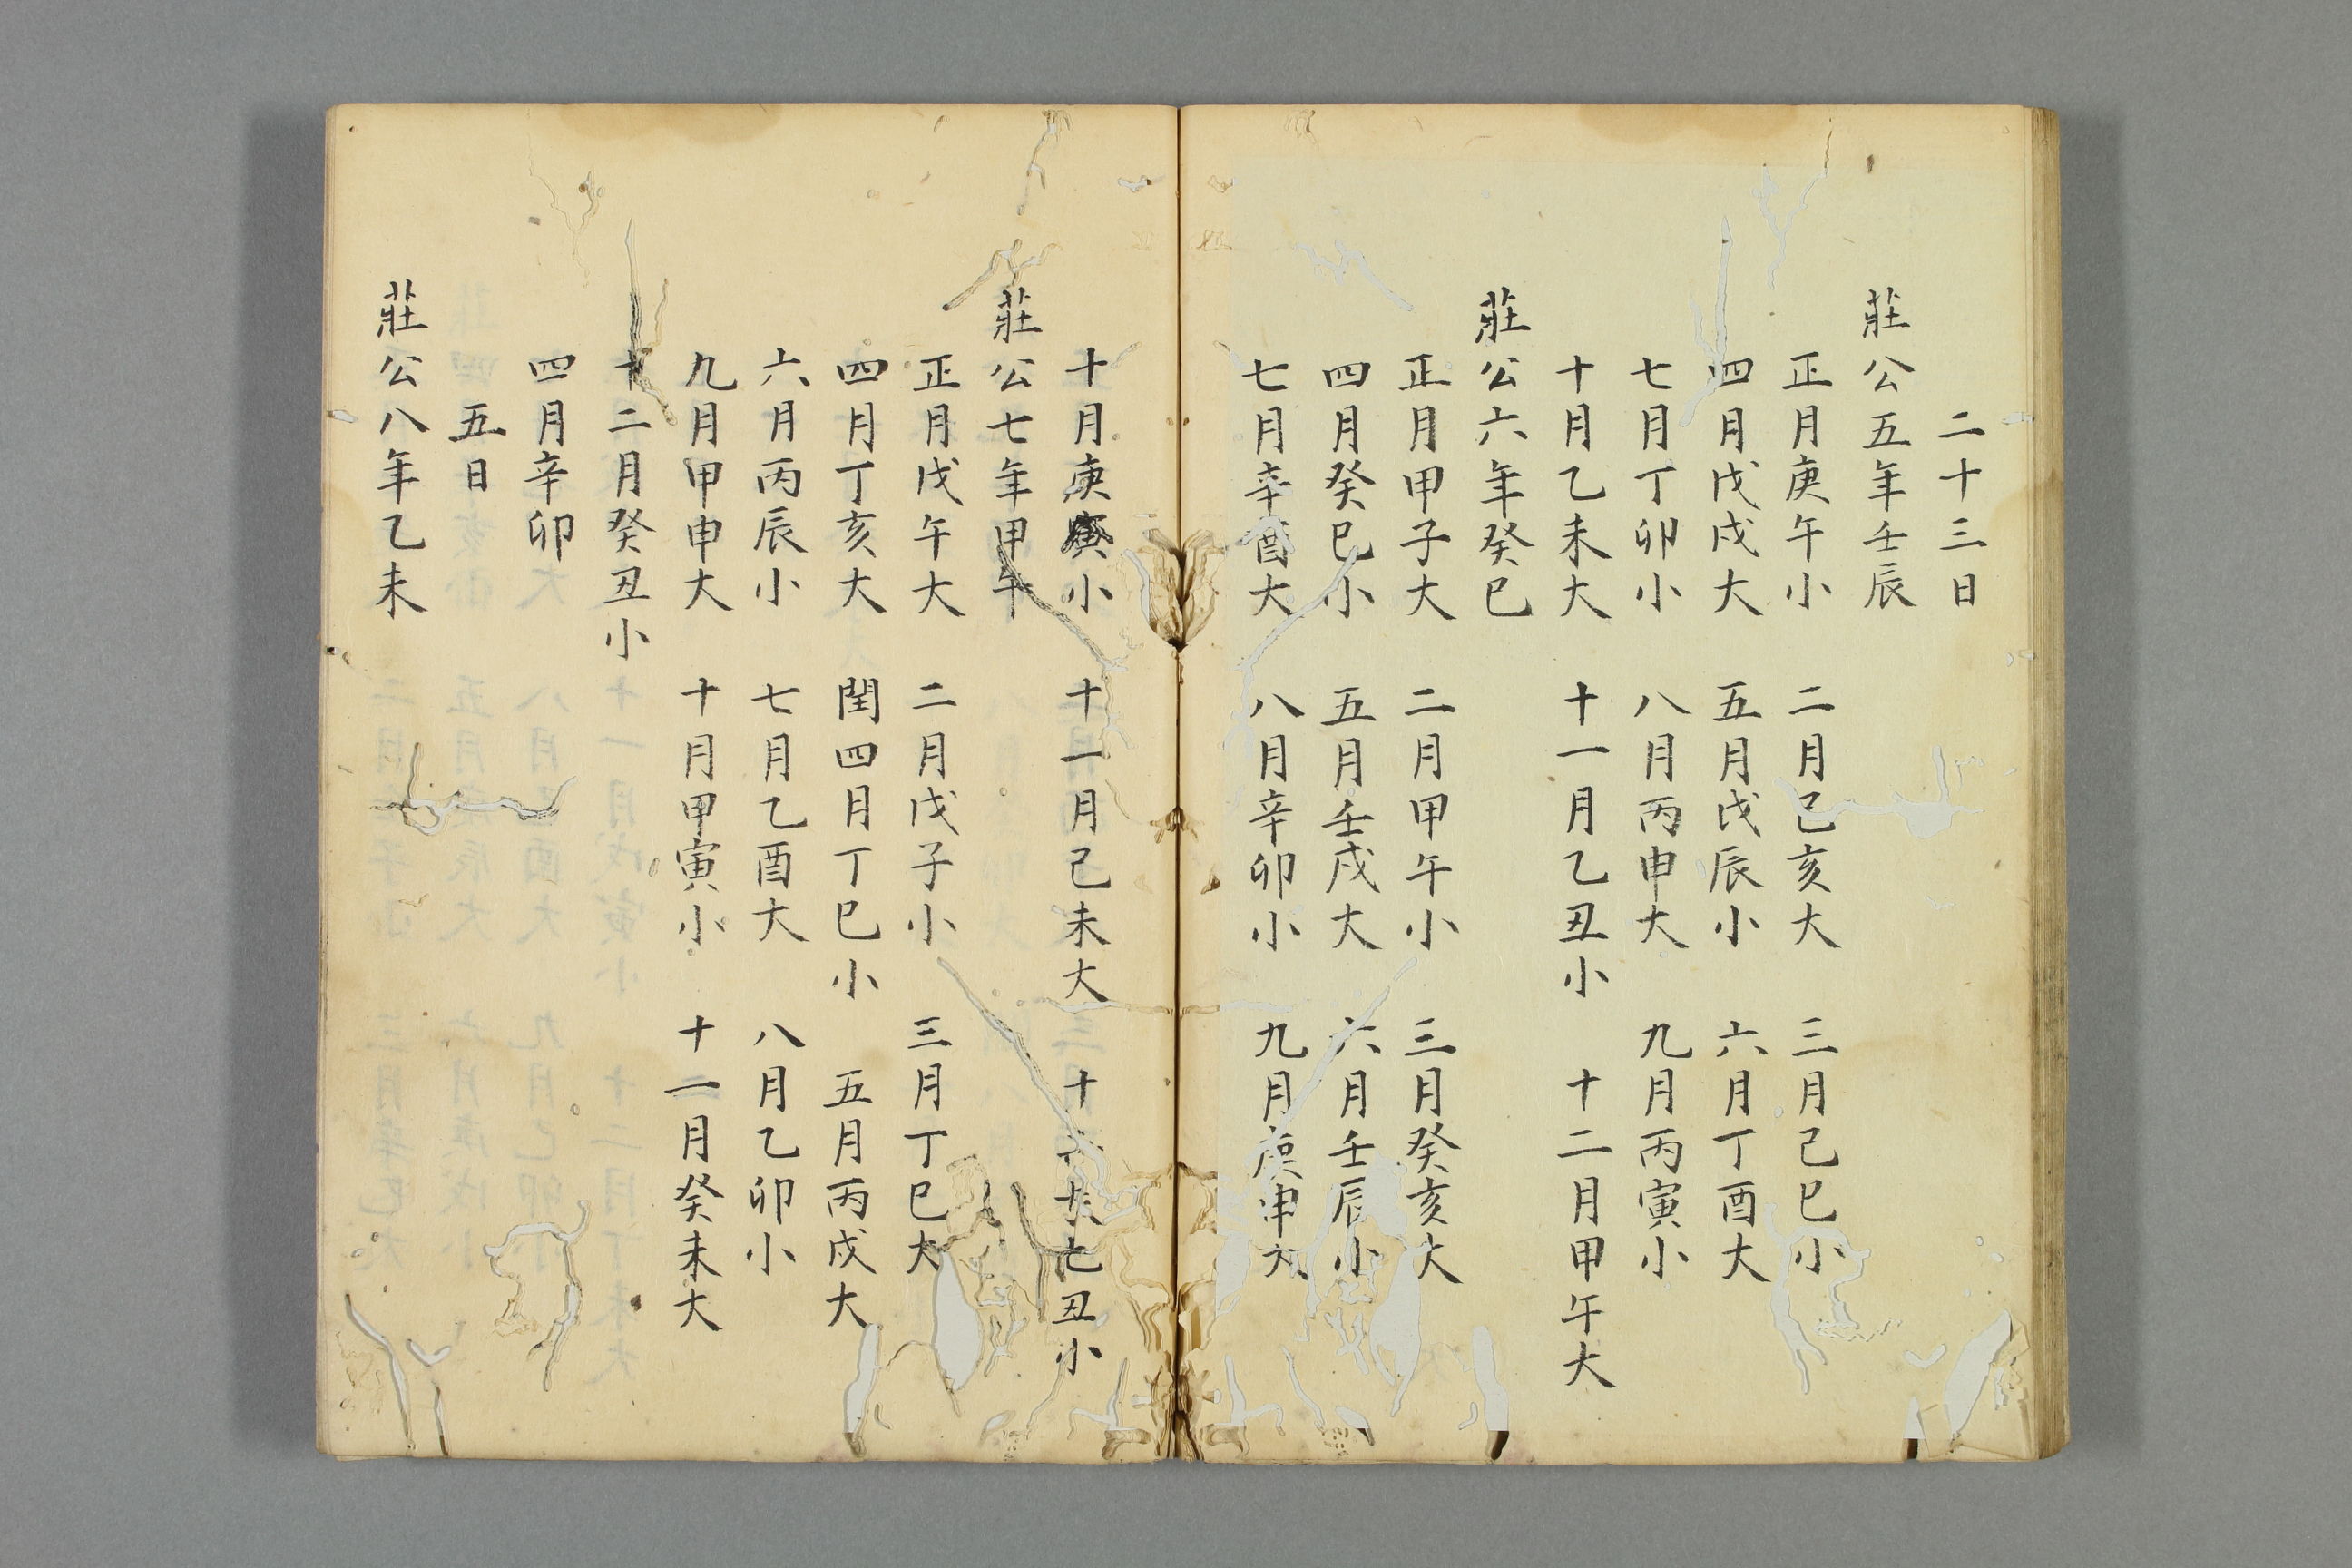 二十三日
莊公五年壬辰
正月庚午小 二月己亥大 三月己巳小
四月戊戌大 五月戊辰小 六月丁酉大
七月丁卯小 八月丙申大 九月丙寅小
十月乙未大 十一月乙丑小 十二月甲午大
莊公六年癸巳
正月甲子大 二月甲午小 三月癸亥大
四月癸巳小 五月壬戌大 六月壬辰小
七月辛酉大 八月辛卯小 九月庚申大
十月庚寅小 十一月己未大 十 丑小
莊公七年甲午
正月戊午大 二月戊子小 三月丁巳大
四月丁亥大 閏四月丁巳小 五月丙戌大
六月丙辰小 七月乙酉大 八月乙卯小
九月甲申大 十月甲寅小 十一月癸未大
十二月癸丑小
四月辛卯
五日
莊公八年乙未